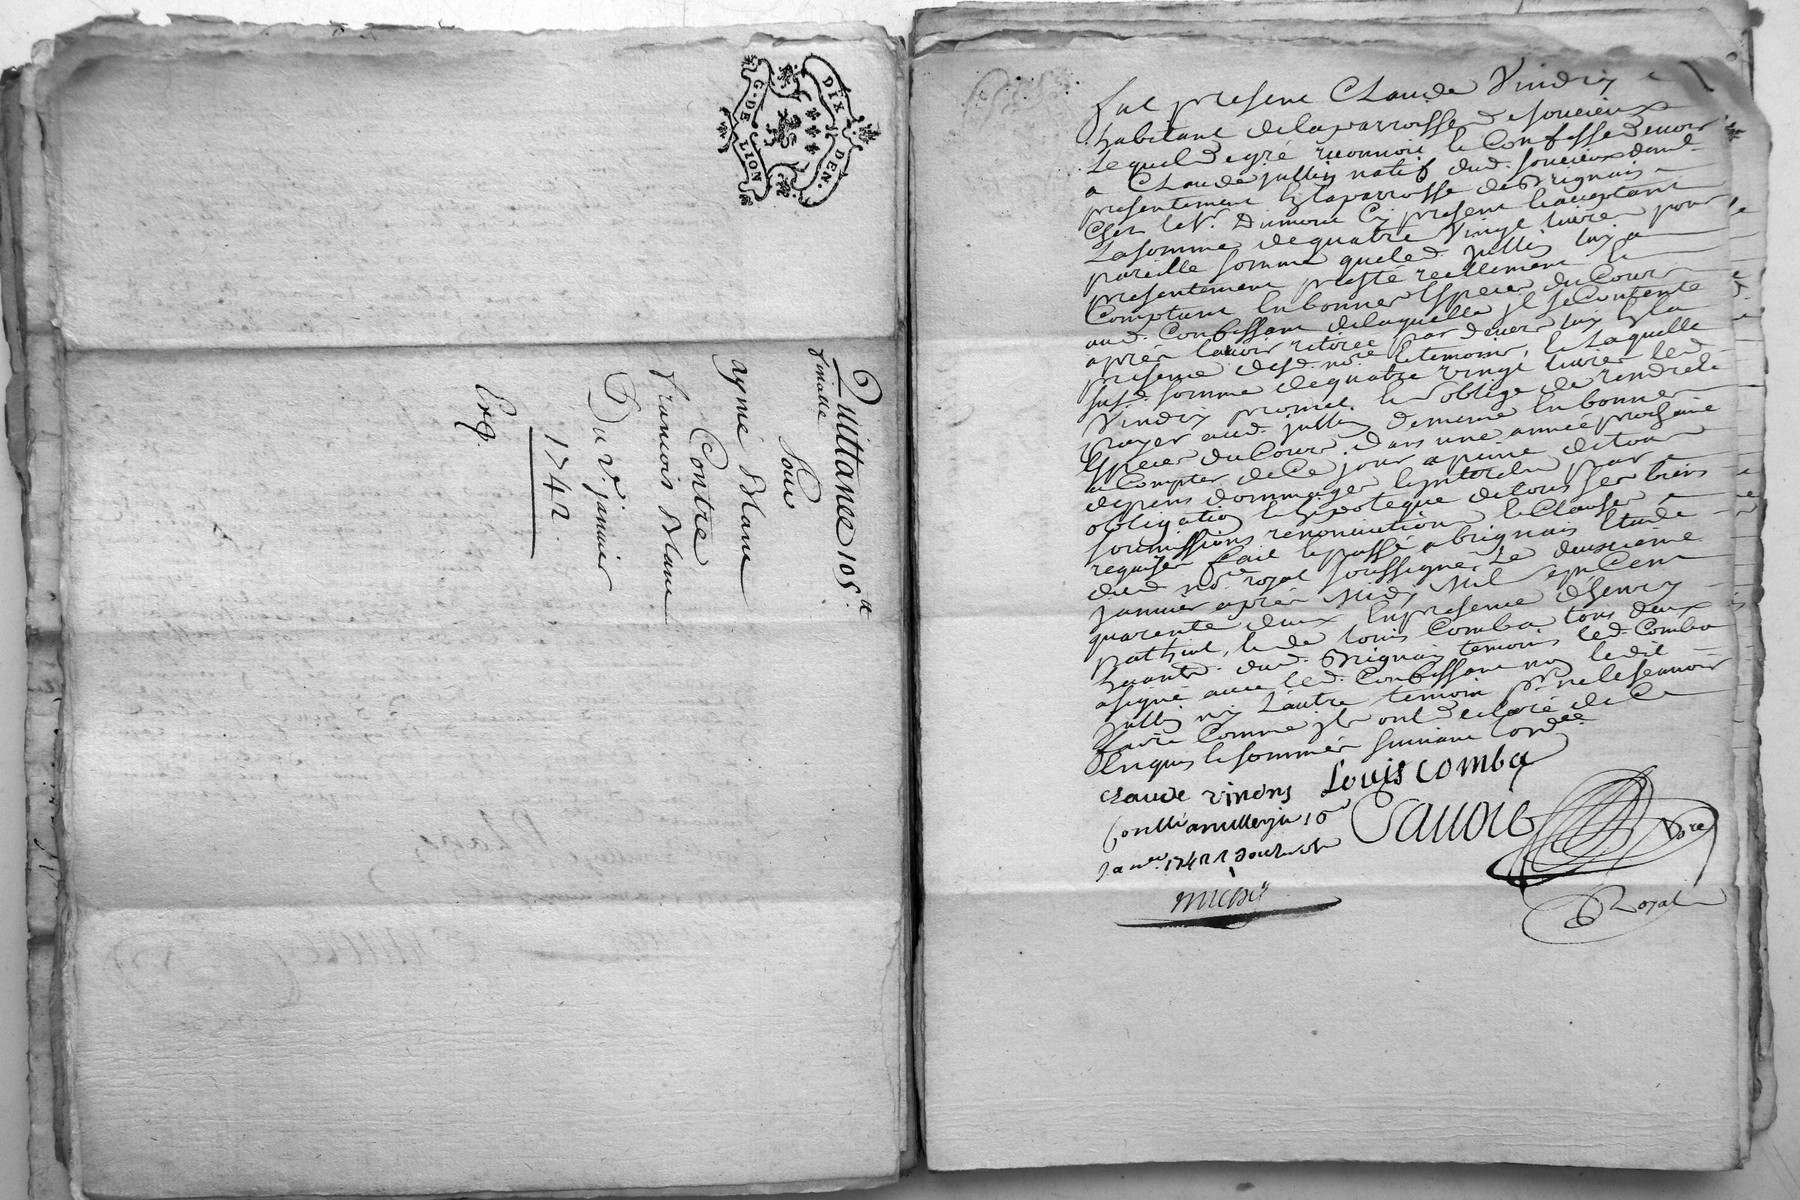 G. DE LION
DIX DEN.
Quittance 105 ll
finade
Pour
aymé Blanc
Contre
francois Blanc
Du 2e janvier
1742
Exp.
fut present Claude Vindry
habitant de la parroisse de soucieux
Lequel de gré reconnoit et Confesse devoir
a Claude jullin natif dud. soucieux demt
presentement en la parroisse de Brignais
Chez le Sr. Dumont Cy present et acceptant
La somme de quatre vingt livres pour
pareille somme que led. jullin luy a
presentement presté reellement et
Comptant en bonnes Especes du Cours
aud. Confessant de laquelle jl se Contente
apres lavoir retirée par devers luy En la
presence desd. nore et temoins, et Laquelle
susd. somme de quatre vingt livres led.
Vindry promet et s'oblige de rendre et
payer aud. jullin de meme En bonnes
Especes du Cours dans une année prochaine
a Compter de Ce jour a peine de tous
depens dommages Interets par
obligation et hipoteque de tous ses biens
soumissions renonciations et Clauses
requises fait et passé a brignais Etude
dud. nore royal soussigné Le deuxieme
janvier apres Midy Mil sept Cent
quarente deux En presence d'henry
pathiot, et de louis Comba tous deux
habants dud. Brignais temoins led. Comba
a signé avec led. Confessant non ledit
jullin ny L'autre temoin pr ne le scavoir
faire Comme jls ont declaré de Ce
Enquis et sommés suivant lordce
claude vindry Louis comba
Conllé a millery le 10e
Janer. 1742 R douze sols
Michel
Savoie
Nore
Royal